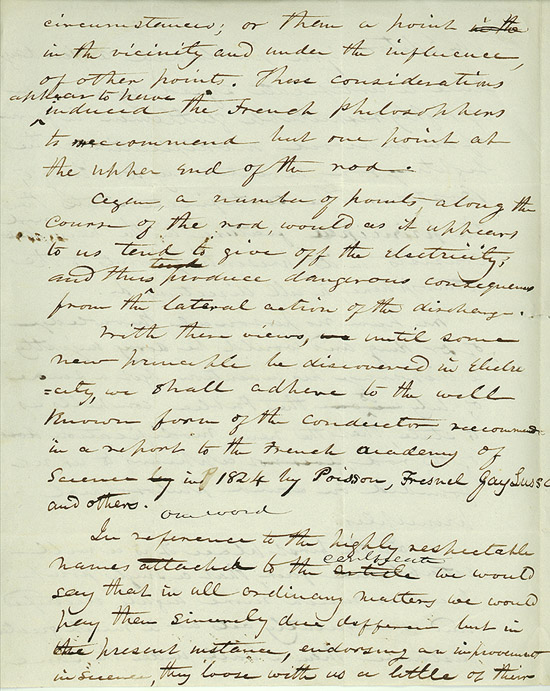 circumstances; or them a point in the
in the vicinity and under the influence,
of other points. These considerations
appear to have
induced the French Philosophers
to reccommend but one point at
the upper end of the rod.
Again, a number of points along the
course of the rod, would as it appears
to us tend to give off the electricity;
tend
and thus produce dangerous consequences
from the lateral action of the discharge.
With these views, we until some
new principle be discovered in Electri
=city, we shall adhere to the well
Known form of the conductor, reccomend
in a report to the French academy of
Science by in 1824 by Poisson, Fresnel Gay Lussac
and others.
one word
In reference to the highly respectable
names attached to the article we would
certificate
say that in all ordinary matters we would
pay them sincerely due differen but in
the present instance, endorsing an improvement
in science, they loose with us a little of their